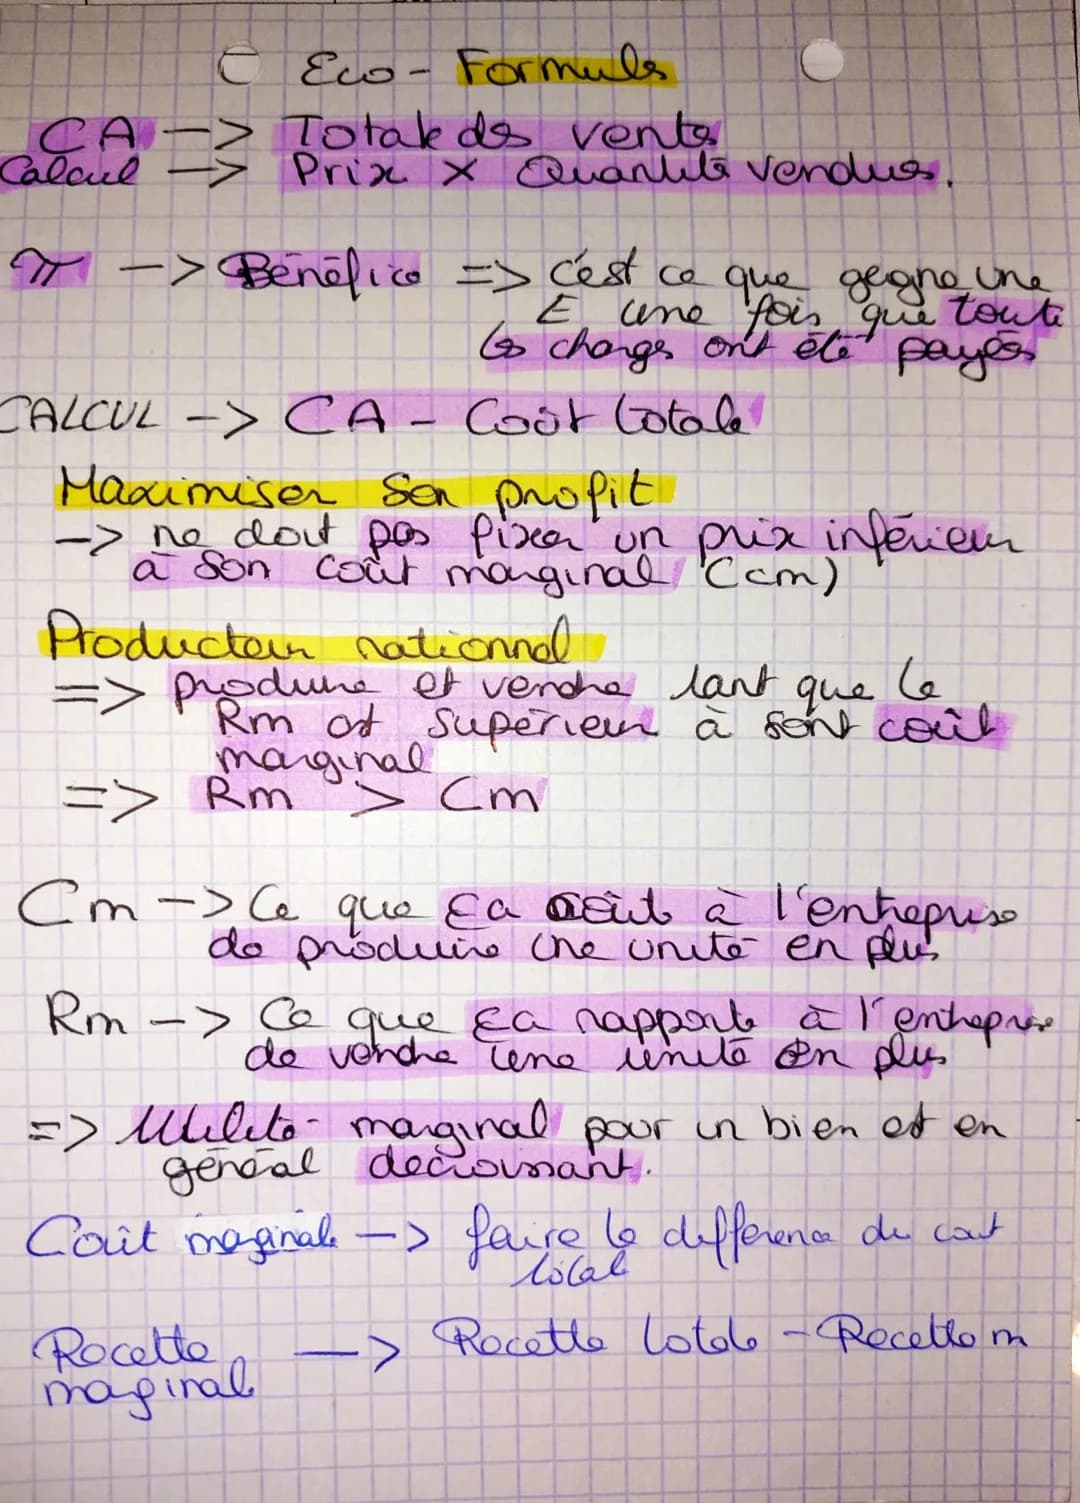 Eco - Formuls
CA -> Total de ds vents
Calcul -> Prix x Quantité vendues.
π -> Bénéfice => c'est ce que gagne une
E une fois que toute
les charges ont été payés
CALCUL -> CA - Coût totale
Maximiser son profit
-> ne doit pas fixer un prix inférieur
à son coût marginal (cm)
Producteur rationnel
=> produire et vendre tant que le
Rm est supérieur à sont coût
marginal
=> Rm > Cm
Cm -> Ce que ça coût à l'entreprise
de produire une unité en plus
Rm -> Ce que ça rapporte à l'entreprise
de vendre une unité en plus
=> Utilité marginal pour un bien est en
général decroissant.
Coût marginale -> faire le différence du cout
total
Recette -> Recette totale - Recette m
marginal